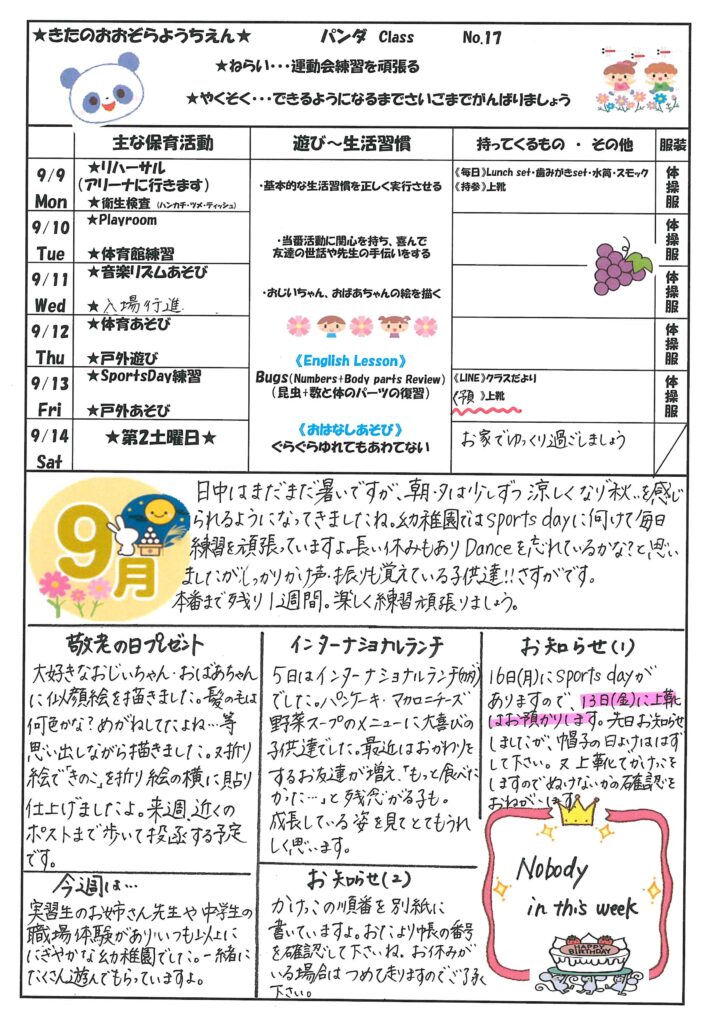 ★きたのおおぞらようちえん★ パンダ Class No.17
★ねらい・・・運動会練習を頑張る
★やくそく・・・できるようになるまでさいごまでがんばりましょう
主な保育活動 遊び～生活習慣 持ってくるもの ・ その他 服装
9/9 Mon
★リハーサル
(アリーナに行きます)
★衛生検査 (ハンカチ・ツメ・ティッシュ)
・基本的な生活習慣を正しく実行させる
《毎日》Lunch set・歯みがきset・水筒・スモック
《持参》上靴
体操服
9/10 Tue
★Playroom
★体育館練習
・当番活動に関心を持ち、喜んで
友達の世話や先生の手伝いをする
体操服
9/11 Wed
★音楽リズムあそび
★入場行進
・おじいちゃん、おばあちゃんの絵を描く
体操服
9/12 Thu
★体育あそび
★戸外遊び
体操服
《English Lesson》
Bugs(Numbers+Body parts Review)
(昆虫+数と体のパーツの復習)
9/13 Fri
★SportsDay練習
★戸外あそび
《LINE》クラスだより
《預》上靴
体操服
9/14 Sat
★第2土曜日★
《おはなしあそび》
ぐらぐらゆれてもあわてない
お家でゆっくり過ごしましょう
9月
日中はまだまだ暑いですが、朝・夕は少しずつ涼しくなり"秋"を感じ
られるようになってきましたね。幼稚園ではsports dayに向けて毎日
練習を頑張っていますよ。長い休みもありDanceを忘れているかな?と思い
ましたがしっかりかけ声・振りも覚えている子供達!!さすがです。
本番まで残り1週間。楽しく練習頑張りましょう。
敬老の日プレゼント
大好きなおじいちゃん・おばあちゃん
に似顔絵を描きました。髪のもは
何色かな?めがねしてたよね…等
思い出しながら描きました。又折り
絵で「きのこ」を折り絵の横に貼り
仕上げましたよ。来週、近くの
ポストまで歩いて投函する予定
です。
今週は…
実習生のお姉さん先生や中学生の
職場体験がありいつも以上に
にぎやかな幼稚園でした。一緒に
たくさん遊んでもらっていますよ。
インターナショナルランチ
5日はインターナショナルランチ
でした。パンケーキ・マカロニチーズ
野菜スープのメニューに大喜びの
子供達でした。最近はおかわりを
するお友達が増え、「もっと食べた
かった…」と残念がる子も。
成長している姿を見てとてもうれ
しく思います。
お知らせ(2)
かけっこの順番を別紙に
書いていますよ。おたより帳の番号
を確認して下さいね。お休みが
いる場合はつめて走りますのでご了承
下さい。
お知らせ(1)
16日(月)にsports dayが
ありますので、13日(金)に上靴
はお預かりします。先日お知らせ
しましたが、帽子の日よけははずし
て下さい。又上靴でかけっこを
しますのでぬけないかの確認を
おねがいします。
Nobody
in this week
HAPPY
BIRTHDAY